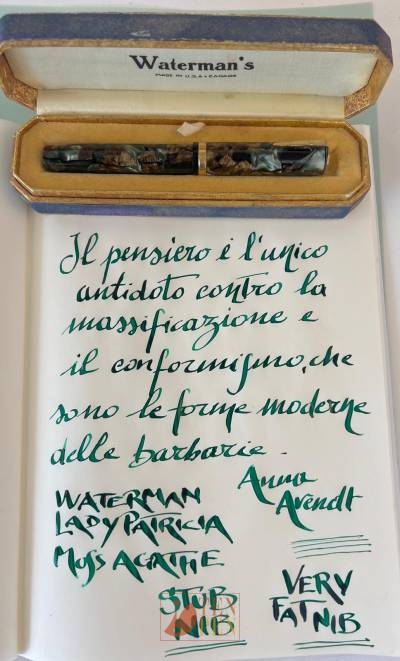 Waterman's
MADE IN U.S.A - CANADA
Il pensiero è l'unico
antidoto contro la
massificazione e
il conformismo, che
sono le forme moderne
delle barbarie.
Anna
Arendt
WATERMAN
LADY PATRICIA
MOSS AGATHE
STUB
NIB
VERY
FAT NIB